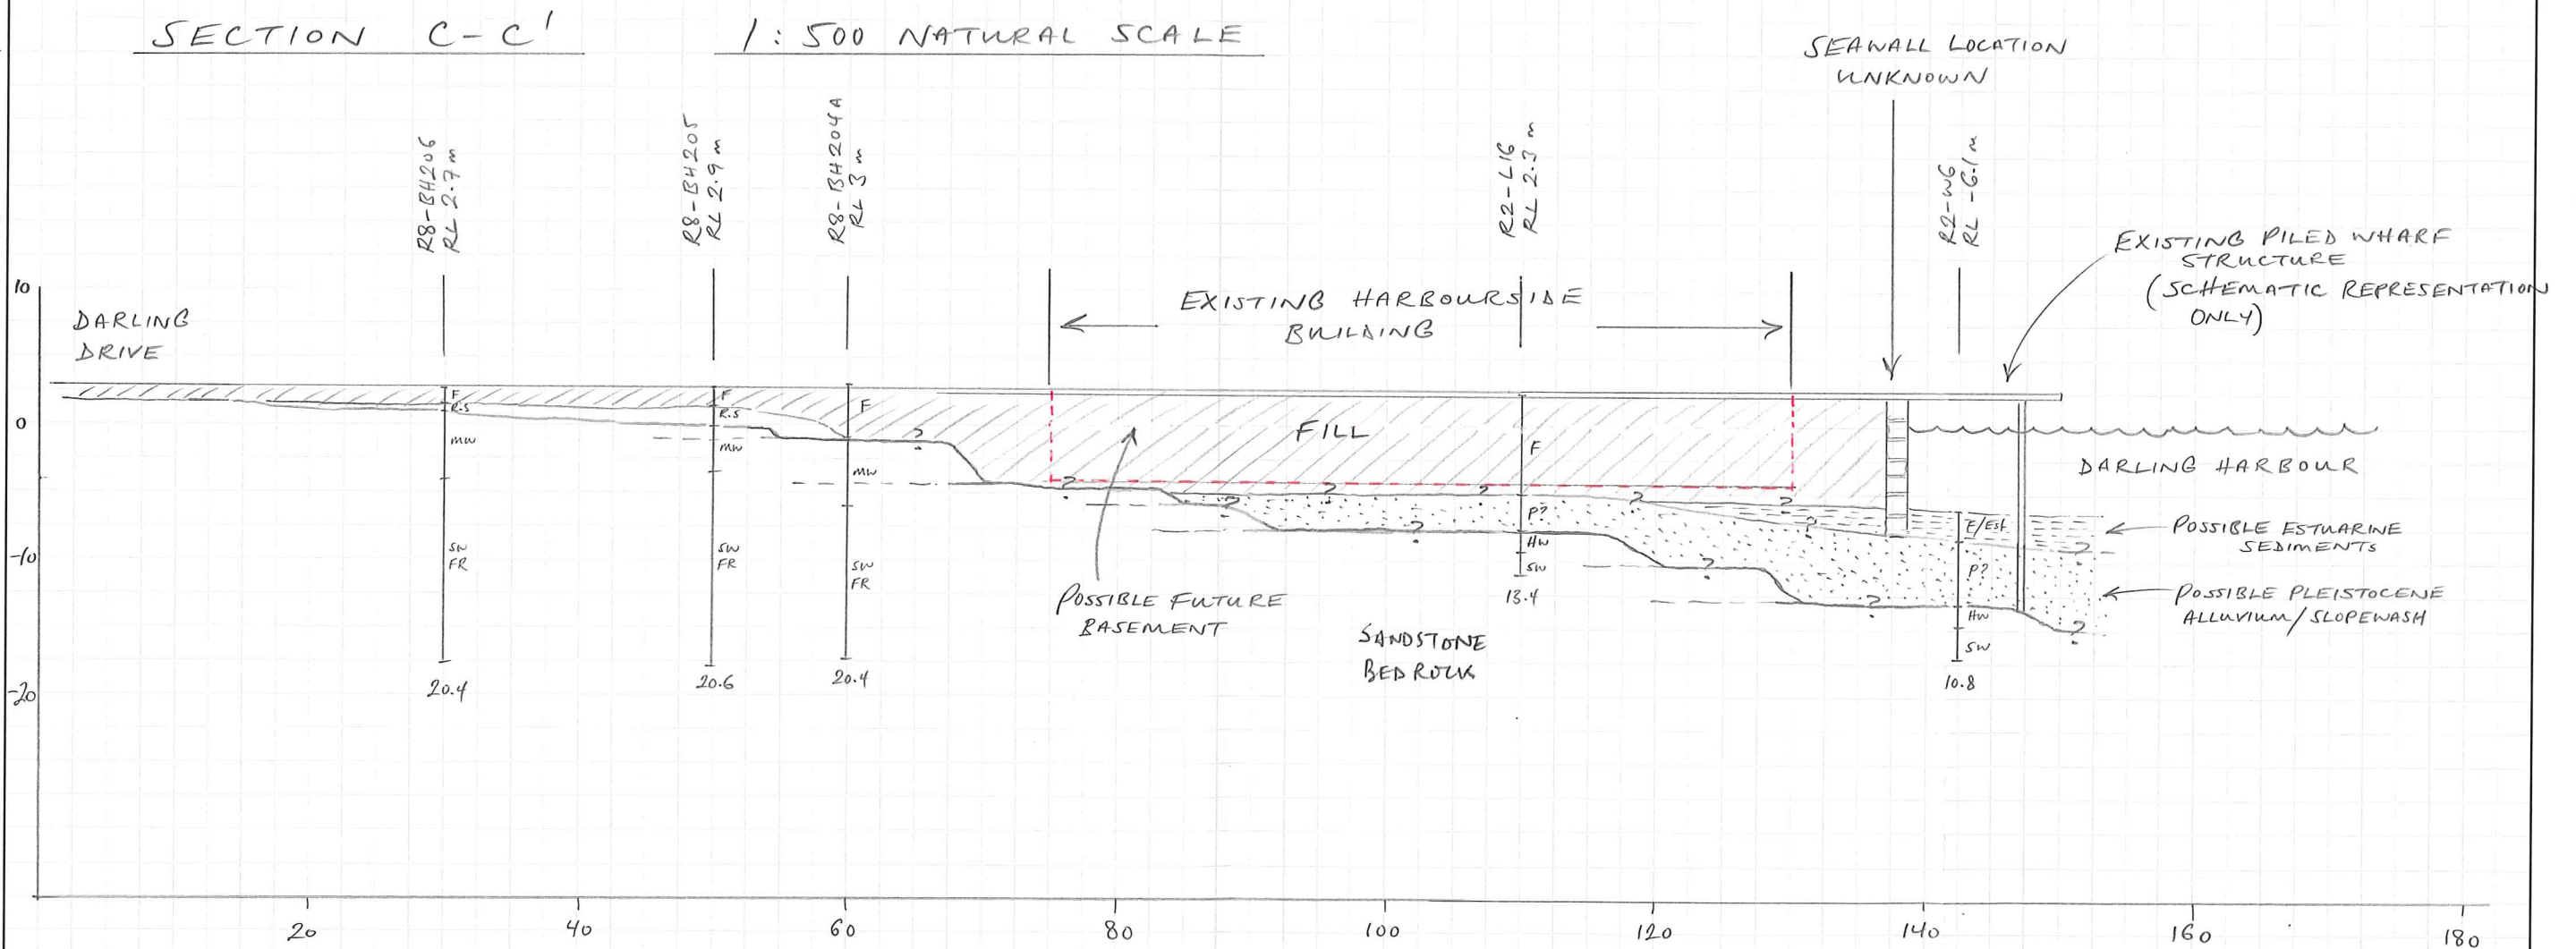 SECTION C-C'
1:500 NATURAL SCALE
SEAWALL LOCATION
UNKNOWN
R8-BH206
RL 2.7m
R8-BH205
RL 2.9m
R8-BH204A
RL 3m
R2-L16
RL 2.3m
R2-W6
RL -6.1m
EXISTING PILED WHARF
STRUCTURE
(SCHEMATIC REPRESENTATION
ONLY)
10
DARLING
DRIVE
EXISTING HARBOURSIDE
BUILDING
F
R.S
MW
SW
FR
20.4
F
R.S
MW
SW
FR
20.6
F
MW
SW
FR
20.4
?
FILL
F
P?
HW
SW
13.4
0
-10
-20
?
?
?
?
?
?
?
?
?
?
?
?
E/Est
P?
HW
SW
10.8
DARLING HARBOUR
POSSIBLE ESTUARINE
SEDIMENTS
POSSIBLE PLEISTOCENE
ALLUVIUM/SLOPEWASH
POSSIBLE FUTURE
BASEMENT
SANDSTONE
BEDROCK
20
40
60
80
100
120
140
160
180